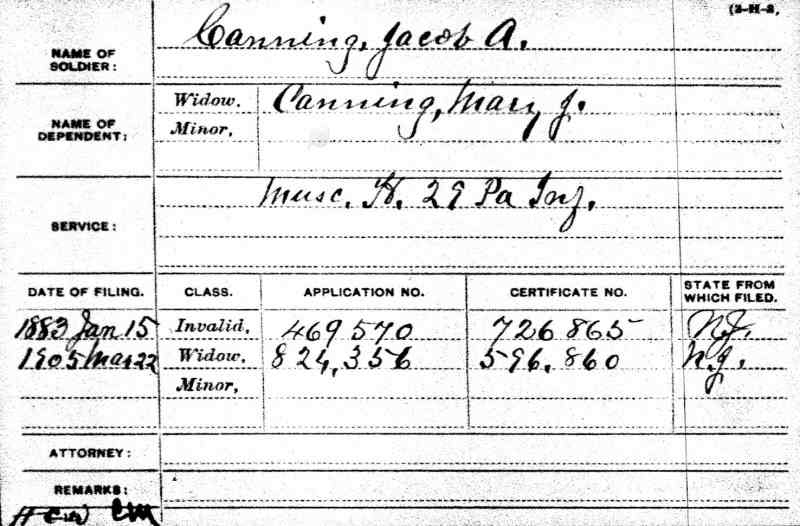 (3-H-3,
NAME OF SOLDIER: Canning, Jacob A.
NAME OF DEPENDENT: Widow, Canning, Mary J.
Minor,
SERVICE: Musc. H. 29 Pa Inf.
DATE OF FILING. CLASS. APPLICATION NO. CERTIFICATE NO. STATE FROM WHICH FILED.
1883 Jan 15 Invalid, 469 570 726 865 N.J.
1905 Mar 22 Widow, 824,356 596,860 N.J.
Minor,
ATTORNEY:
REMARKS: